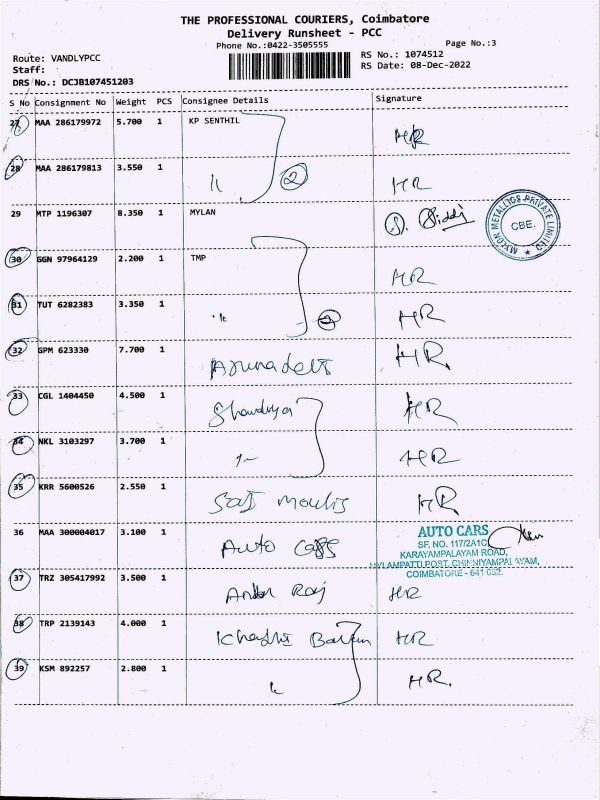 THE PROFESSIONAL COURIERS, Coimbatore
Delivery Runsheet - PCC
Phone No.:0422-3505555
Page No.:3
Route: VANDLYPCC
RS No.: 1074512
Staff:
RS Date: 08-Dec-2022
DRS No.: DCJB107451203
S No Consignment No Weight PCS Consignee Details Signature
27 MAA 286179972 5.700 1 KP SENTHIL HR
28 MAA 286179813 3.550 1 2 HR
29 MTP 1196307 8.350 1 MYLAN
MYLON METALLICS PRIVATE LIMITED
CBE.
30 GGN 97964129 2.200 1 TMP HR
31 TUT 6282383 3.350 1 HR
32 GPM 623330 7.700 1 HR.
33 CGL 1404450 4.500 1 HR
34 NKL 3103297 3.700 1 HR
35 KRR 5600526 2.550 1 HR
36 MAA 300004017 3.100 1 Auto Cars
AUTO CARS
SF. NO. 117/2A1C
KARAYAMPALAYAM ROAD,
MYLAMPATTI POST, CHINNIYAMPALAYAM,
COIMBATORE - 641 062.
37 TRZ 305417992 3.500 1 HR
38 TRP 2139143 4.000 1 HR
39 KSM 892257 2.800 1 HR.